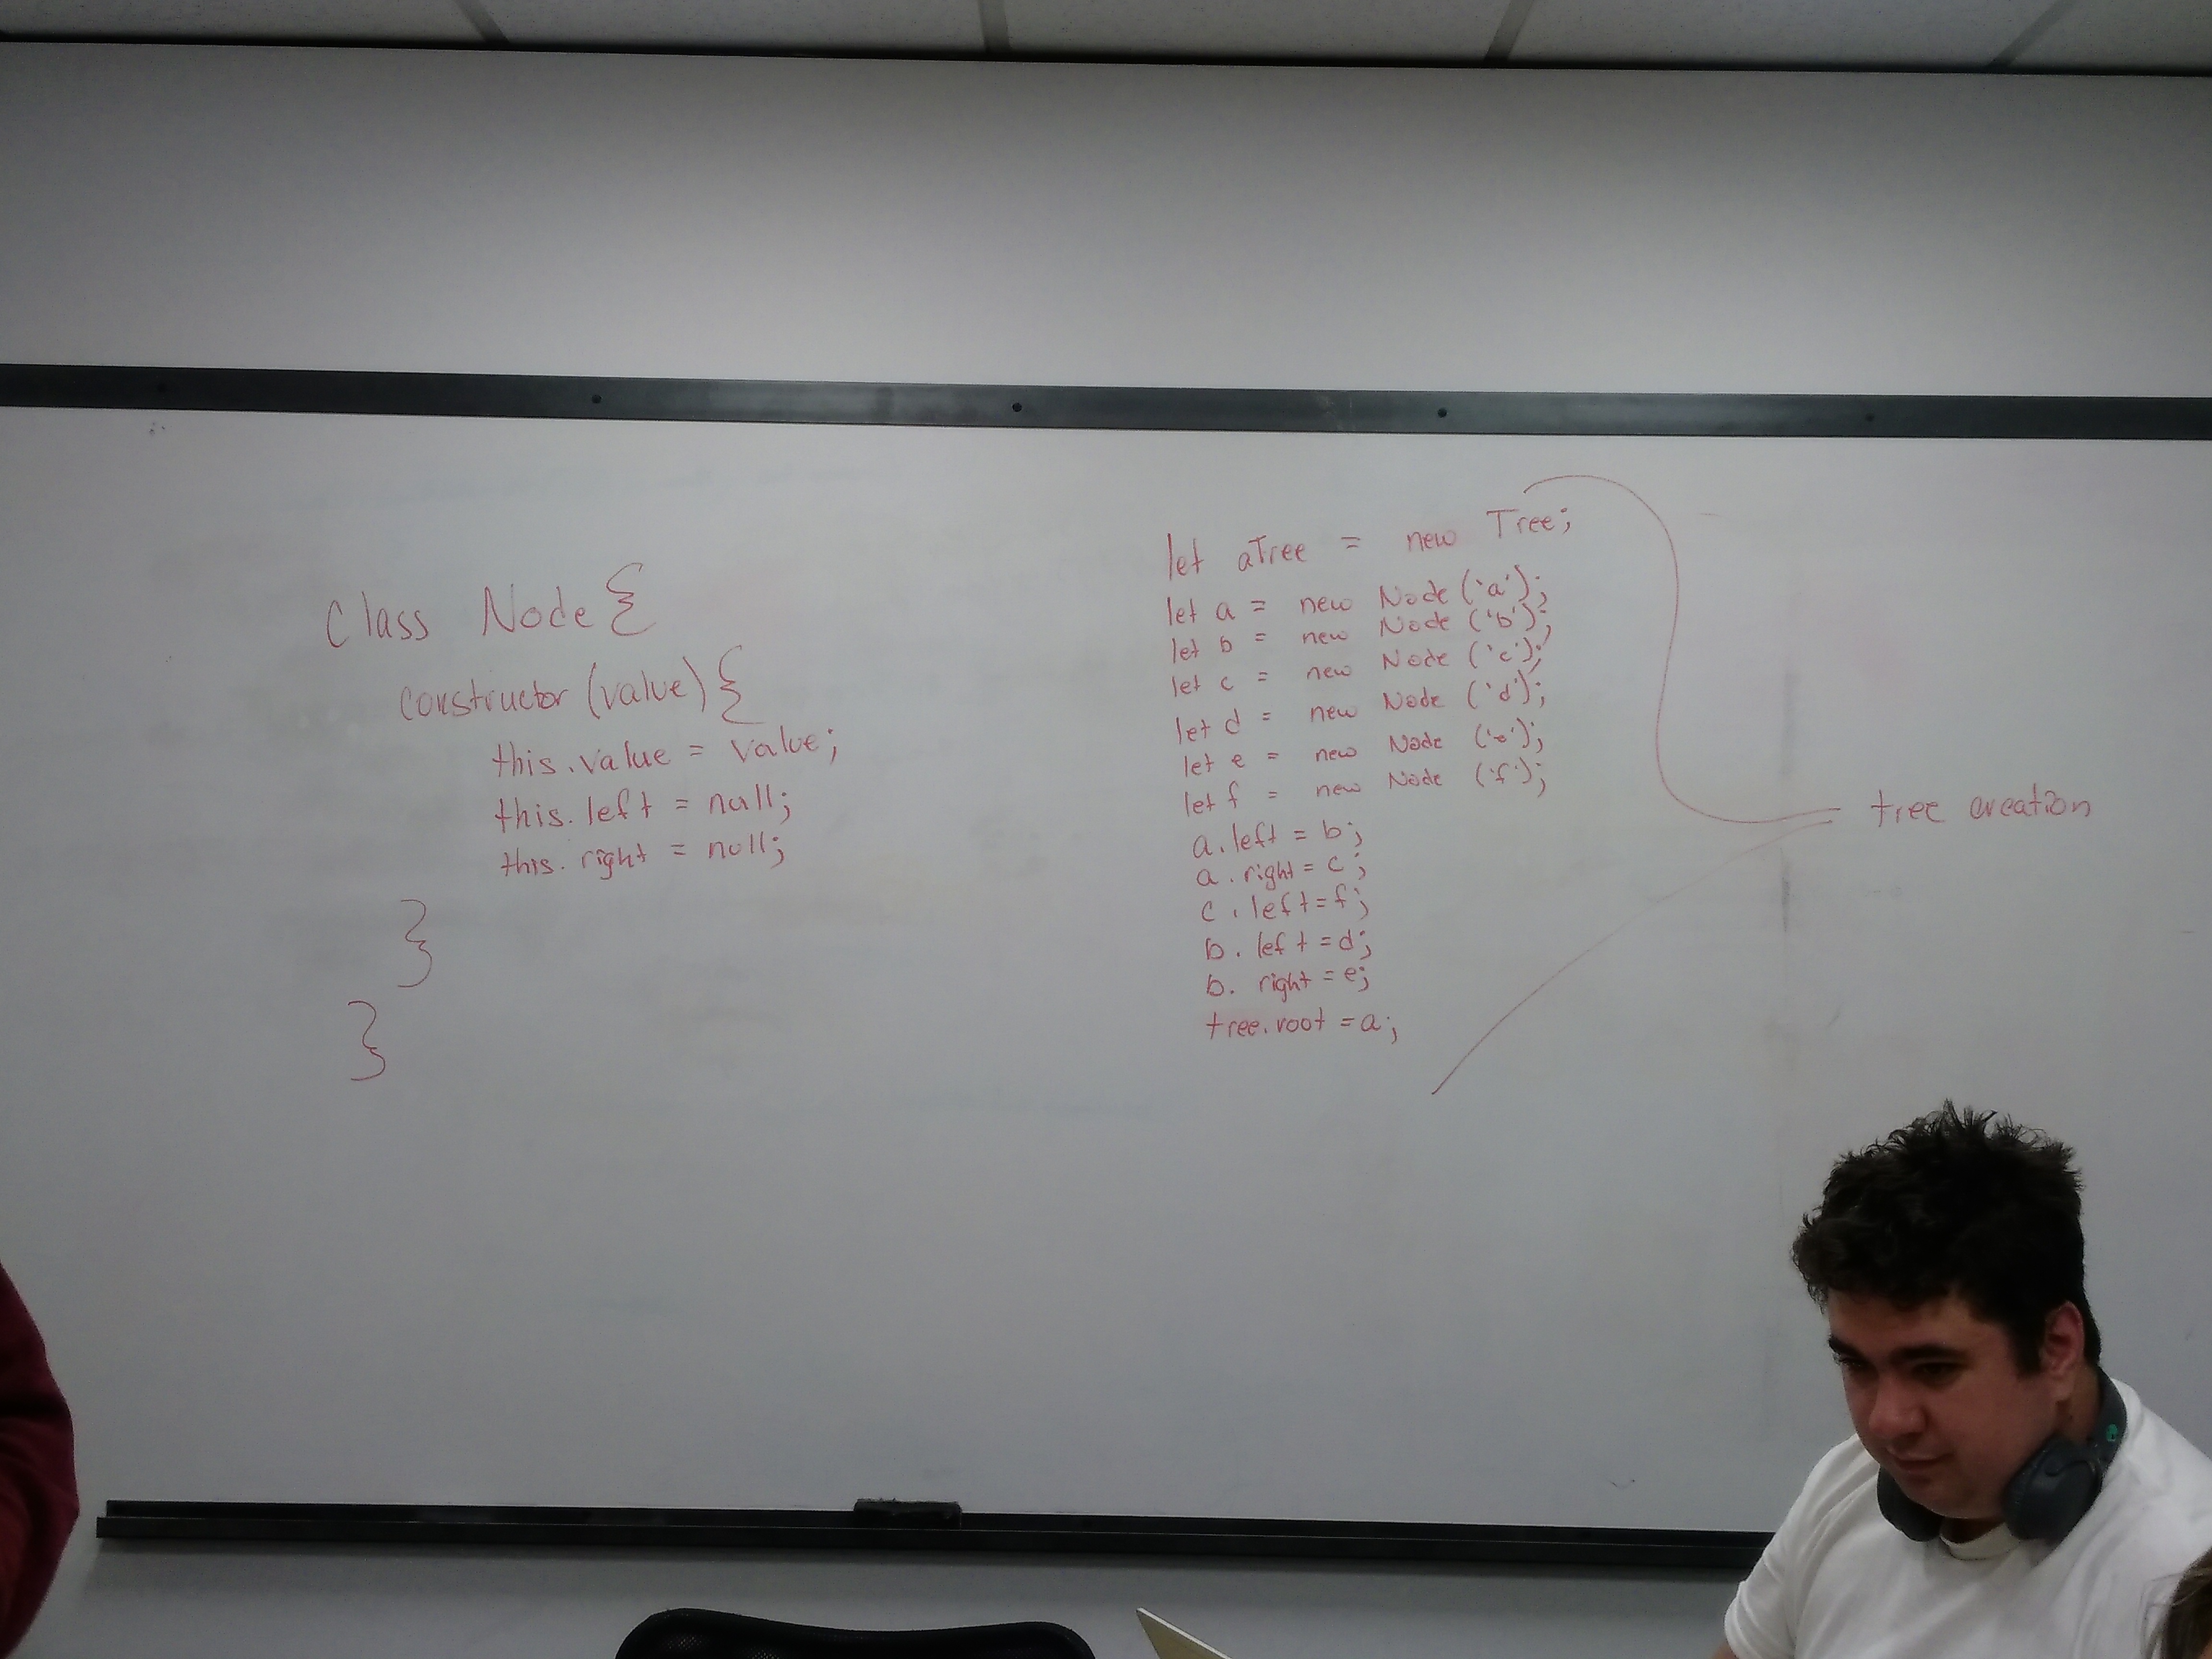 Class Node {
constructor (value) {
this.value = value;
this.left = null;
this.right = null;
}
}
let aTree = new Tree;
let a = new Node ('a');
let b = new Node ('b');
let c = new Node ('c');
let d = new Node ('d');
let e = new Node ('e');
let f = new Node ('f');
a.left = b;
a.right = c;
c.left = f;
b.left = d;
b.right = e;
tree.root = a;
tree creation